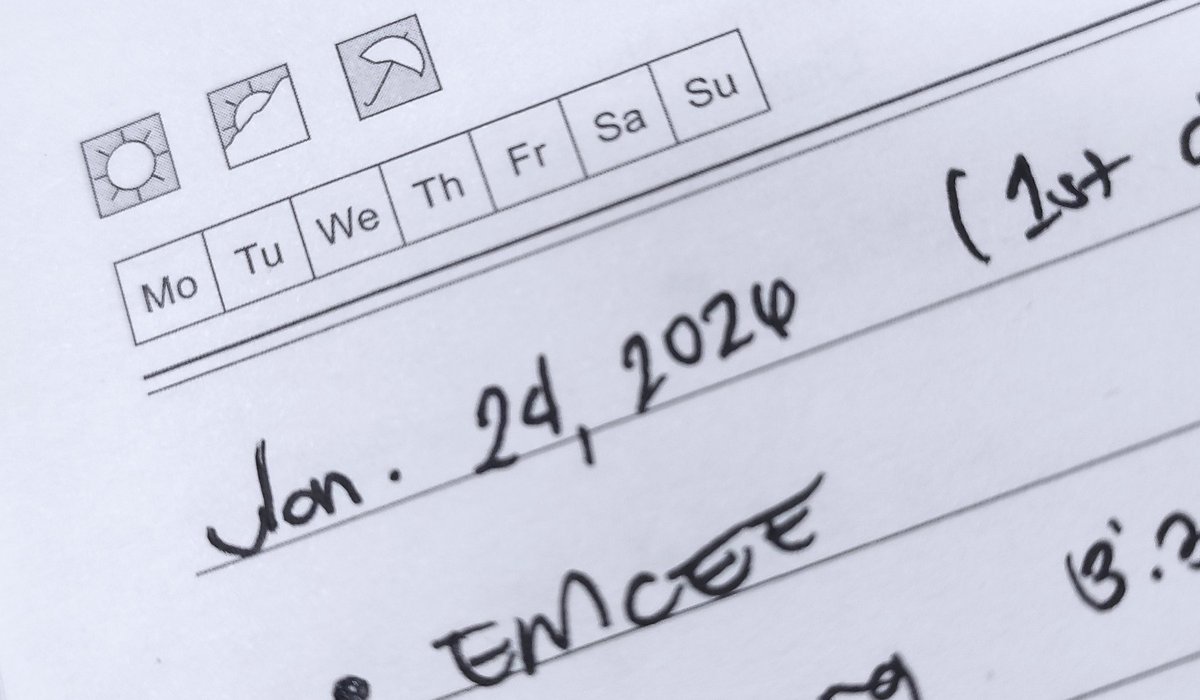 Mo Tu We Th Fr Sa Su
Jan. 24, 2024 (1st
• EMCEE